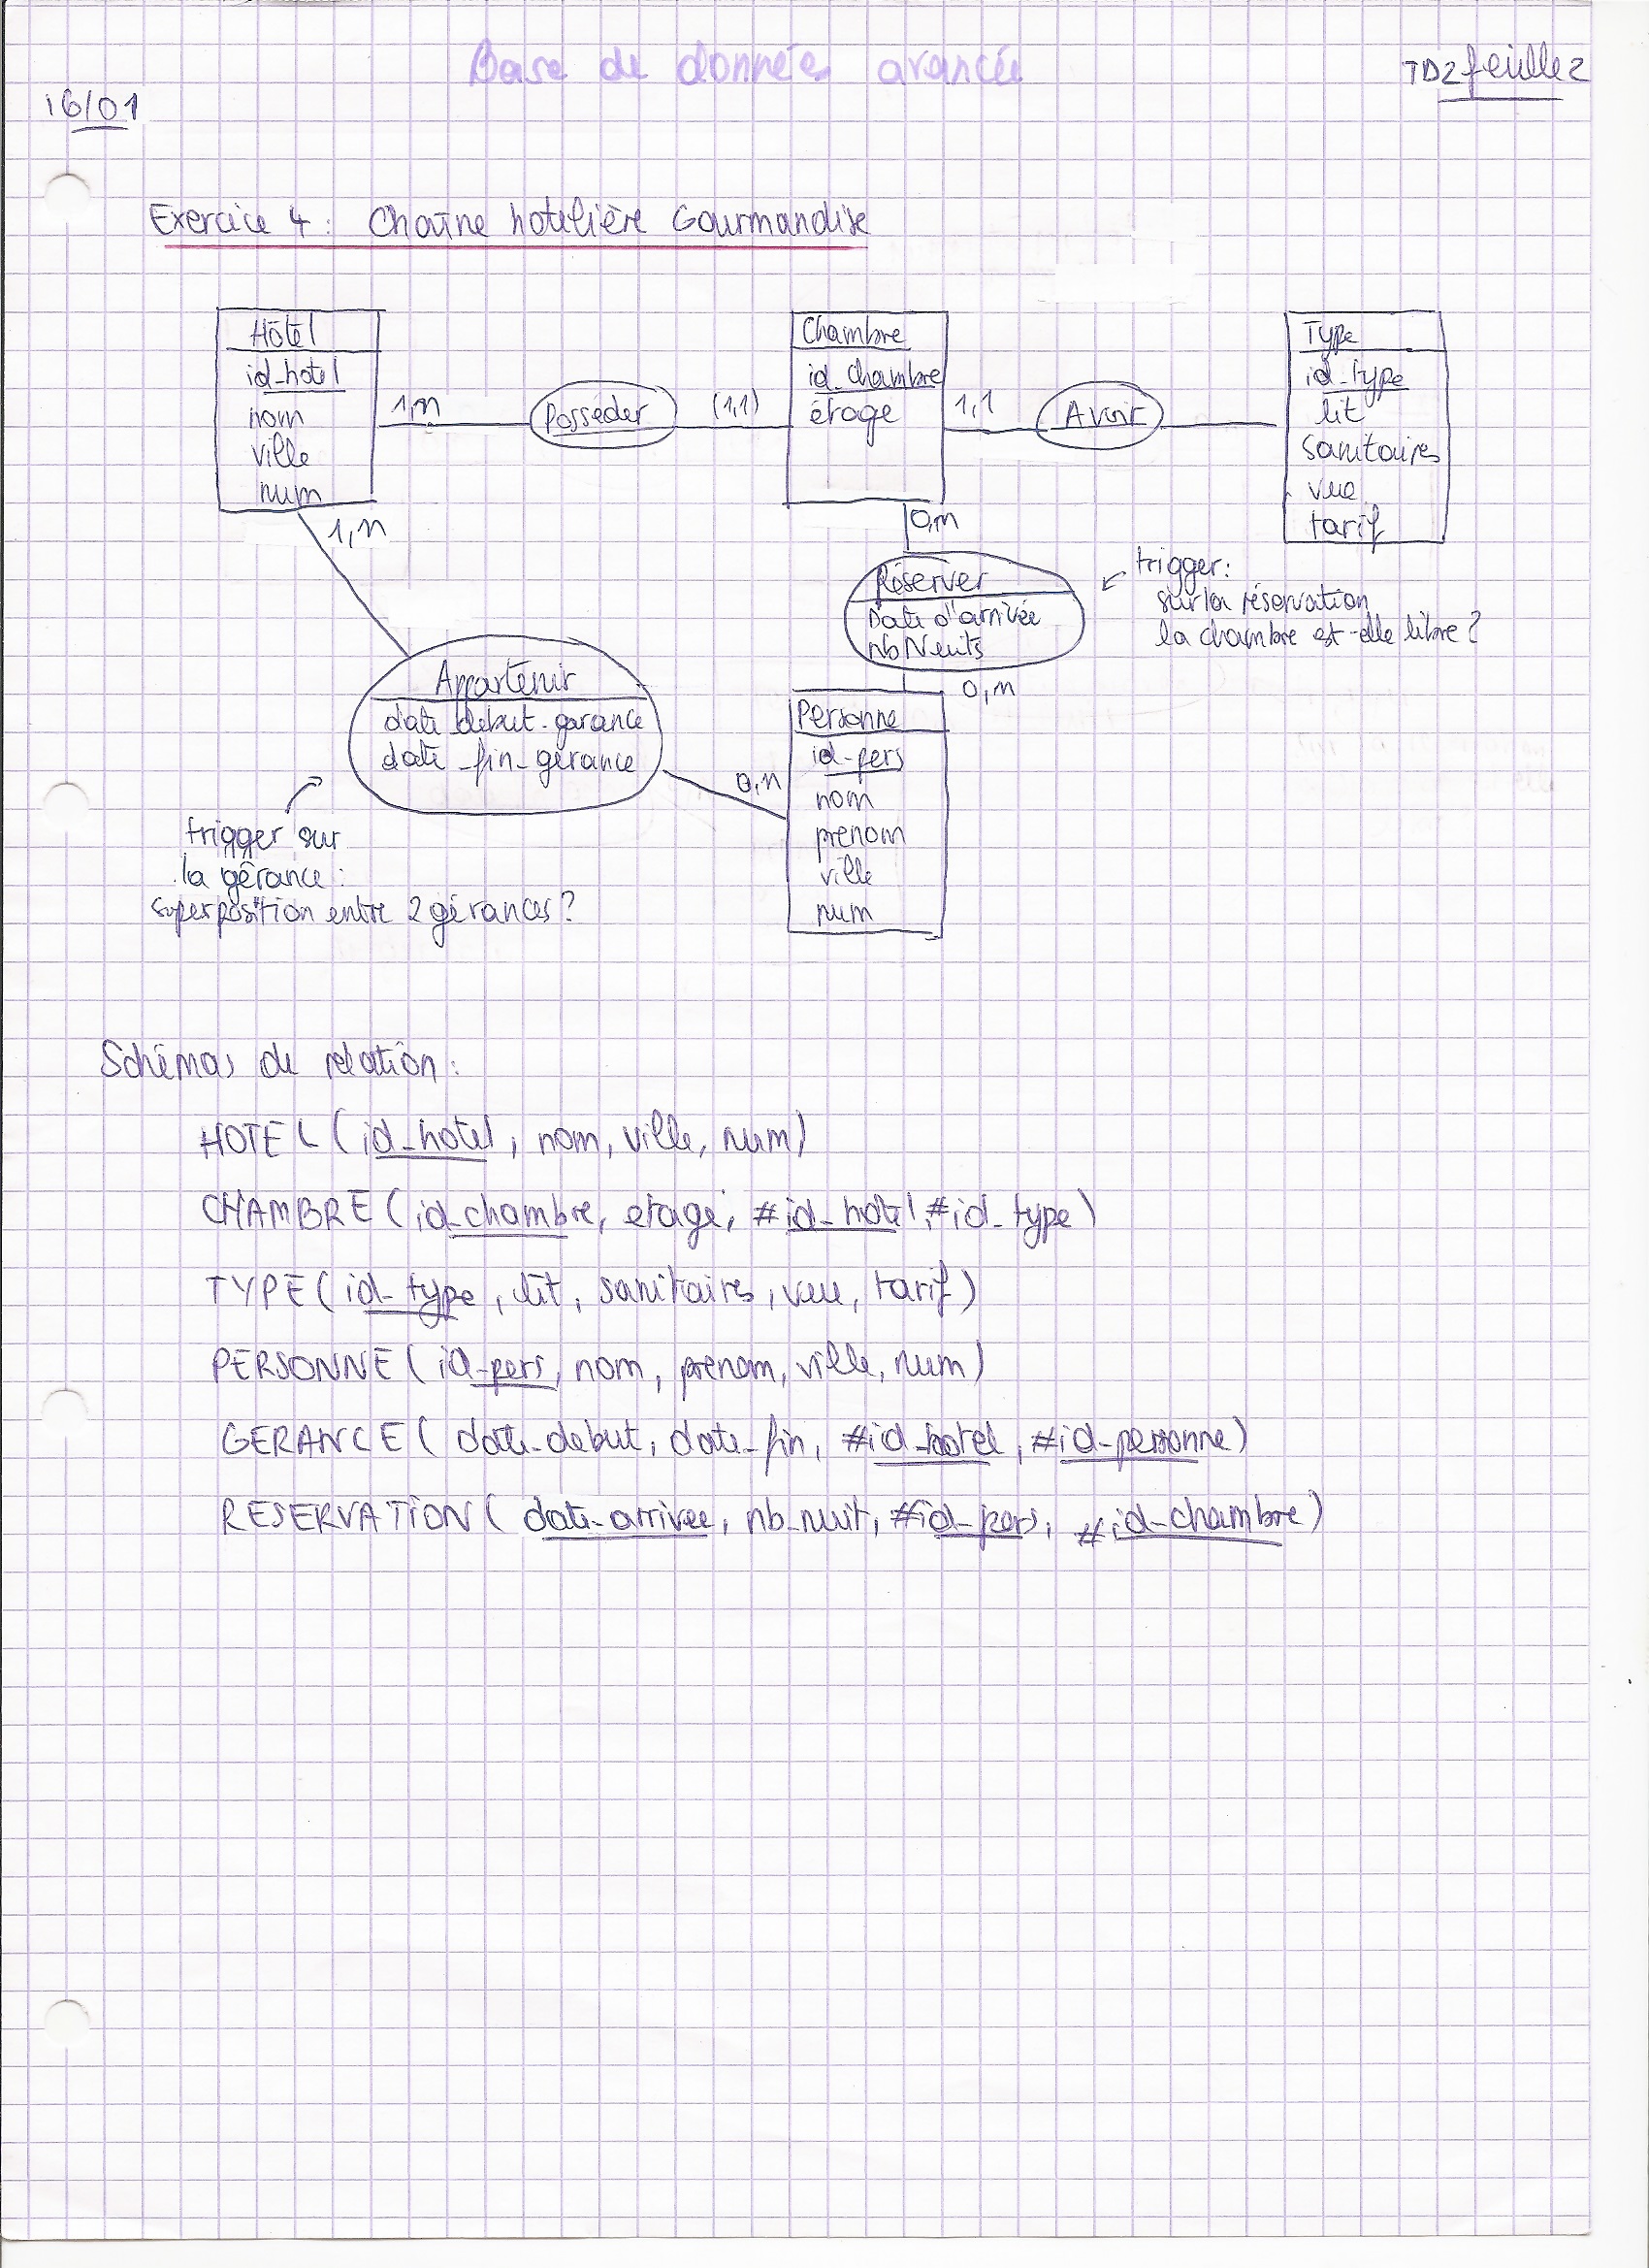 Base de données avancée
TD2 feuille 2
16/01
Exercice 4 : Chaîne hotelière Gourmandise
Hôtel
id_hotel
nom
ville
num
1,n
Posséder
(1,1)
Chambre
id_chambre
étage
1,1
Avoir
Type
id_type
lit
sanitaires
vue
tarif
1,n
0,n
Réserver
Date d'arrivée
nbNuits
trigger:
sur la réservation
la chambre est-elle libre ?
0,n
Appartenir
date_debut_gerance
date_fin_gérance
0,n
Personne
id_pers
nom
prenom
ville
num
trigger sur
la gérance :
superposition entre 2 gérances ?
Schémas de relation :
HOTEL (id_hotel, nom, ville, num)
CHAMBRE (id_chambre, etage, #id_hôtel, #id_type)
TYPE (id_type, lit, sanitaires, vue, tarif)
PERSONNE (id_pers, nom, prenom, ville, num)
GERANCE (date_debut, date_fin, #id_hotel, #id_personne)
RESERVATION (date_arrivee, nb_nuit, #id_pers, #id_chambre)